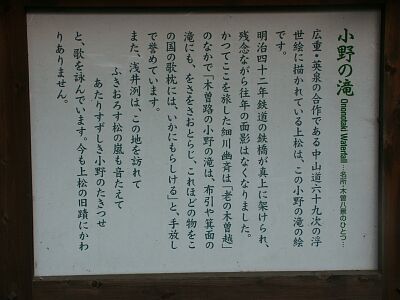 小野の滝 Ononotaki Waterfall…名所「木曽八景のひとつ」…
広重・英泉の合作である中山道六十九次の浮
世絵に描かれている上松は、この小野の滝の絵
です。
明治四十二年鉄道の鉄橋が真上に架けられ、
残念ながら往年の面影はなくなりました。
かつてここを旅した細川幽斎は「老の木曽越」
のなかで「木曽路の小野の滝は、布引や箕面の
滝にも、をさをさおとらじ、これほどの物をこ
の国の歌枕には、いかにもらしける」と、手放し
で誉めています。
また、浅井洌は、この地を訪れて
ふきおろす松の嵐も音たえて
あたりすずしき小野のたきつせ
と、歌を詠んでいます。今も上松の旧蹟にかわ
りありません。